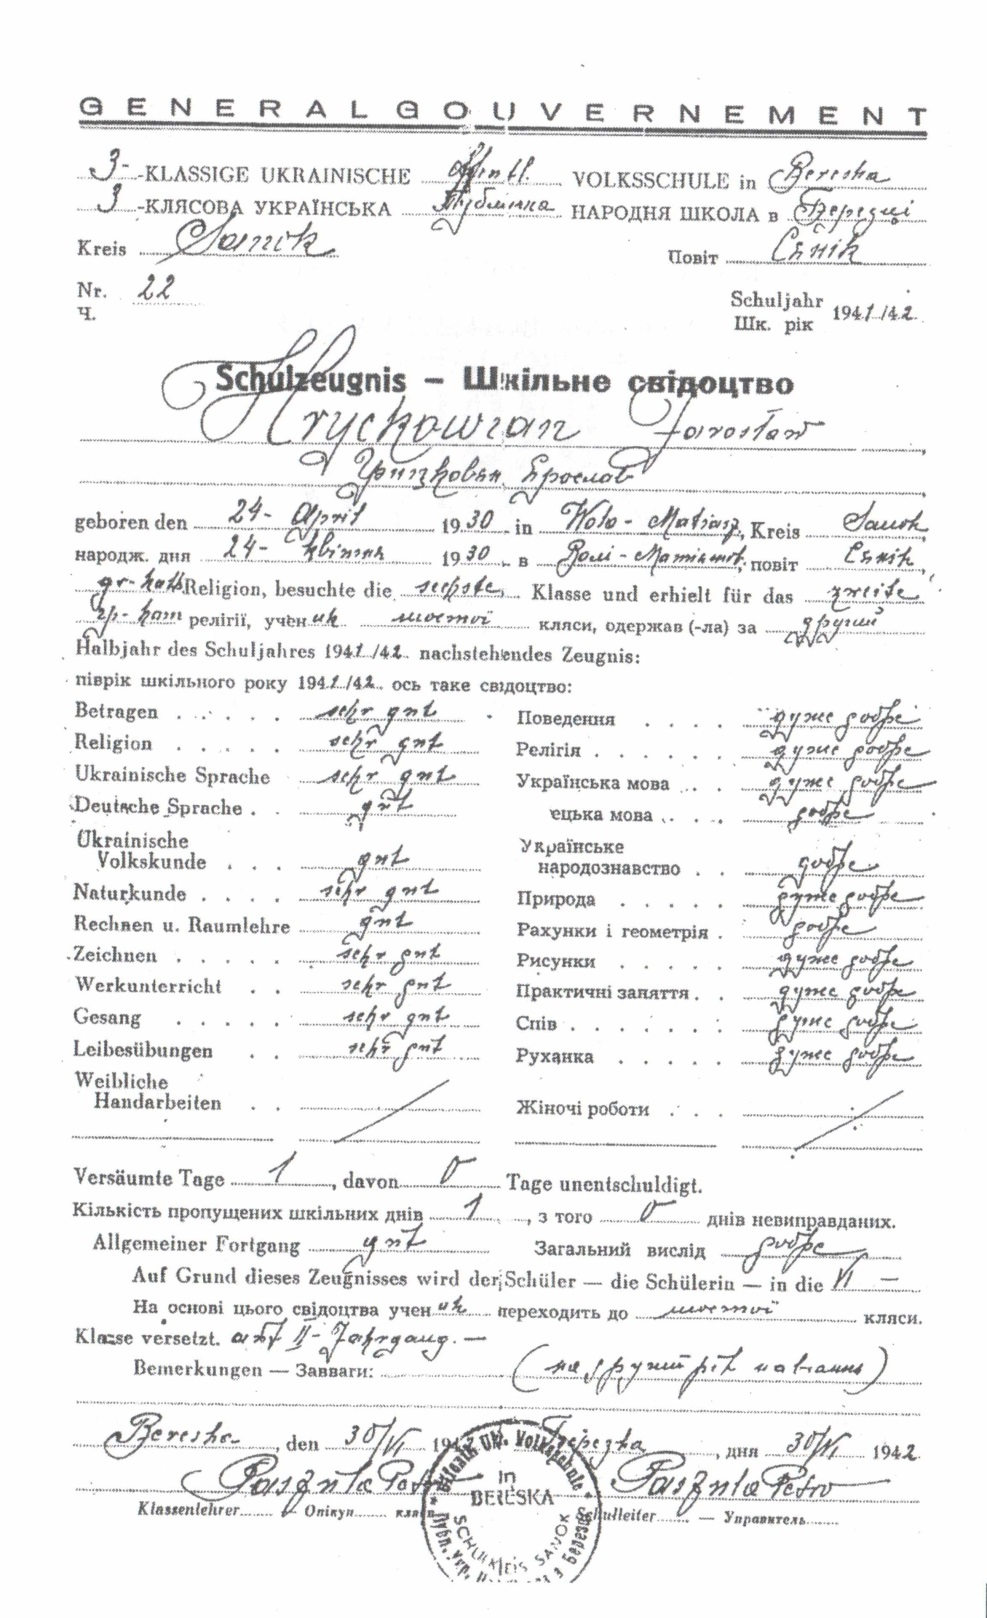 GENERALGOUVERNEMENT
3- -KLASSIGE UKRAINISCHE öffentl. VOLKSSCHULE in Bereska
3 -КЛЯСОВА УКРАЇНСЬКА Публична НАРОДНЯ ШКОЛА в Березці
Kreis Sanok Повіт Сянік
Nr. 22 Schuljahr 1941/42
Ч. Шк. рік
Schulzeugnis – Шкільне свідоцтво
Hryckowian Jarosław
Грицковян Ярослав
geboren den 24- April 1930 in Wola-Matiasz, Kreis Sanok
народж. дня 24- квітня 1930 в Волі-Матіяшов, повіт Сянік,
gr-kath Religion, besuchte die sechste Klasse und erhielt für das zweite
гр-кат релігії, ученик шостої кляси, одержав (-ла) за другий
Halbjahr des Schuljahres 1941/42 nachstehendes Zeugnis:
піврік шкільного року 1941/42 ось таке свідоцтво:
Betragen sehr gut Поведення дуже добре
Religion sehr gut Релігія дуже добре
Ukrainische Sprache sehr gut Українська мова дуже добре
Deutsche Sprache gut ецька мова добре
Ukrainische Українське
Volkskunde gut народознавство добре
Naturkunde sehr gut Природа дуже добре
Rechnen u. Raumlehre gut Рахунки і геометрія добре
Zeichnen sehr gut Рисунки дуже добре
Werkunterricht sehr gut Практичні заняття дуже добре
Gesang sehr gut Спів дуже добре
Leibesübungen sehr gut Руханка дуже добре
Weibliche
Handarbeiten Жіночі роботи
Versäumte Tage 1, davon 0 Tage unentschuldigt.
Кількість пропущених шкільних днів 1, з того 0 днів невиправданих.
Allgemeiner Fortgang gut Загальний вислід добре
Auf Grund dieses Zeugnisses wird der Schüler — die Schülerin — in die VI —
На основі цього свідоцтва ученик переходить до шостої кляси.
Klasse versetzt. auf II- Jahrgang. —
Bemerkungen — Завваги: (на другий рік навчання)
Bereska, den 30/VI 1942 Березка, дня 30/VI 1942
Petro Petro
Klassenlehrer — Опікун кляси Schulleiter — Управитель
Öffentl. Ukr. Volksschule
in
BERESKA
SCHULKREIS SANOK
Публ. Укр. в Березці